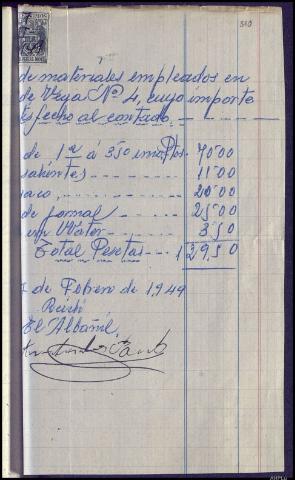 310
de materiales empleados en
de Vega Nº 4, cuyo importe
fecho al contado.
de 1ª á 3'50 una Ptos. 70'00
salientes 11'00
saco, 20'00
de jornal 25'00
em Water 3'50
Total Pesetas 129'50
de Febrero de 1,949
Recibí
El Albañil,